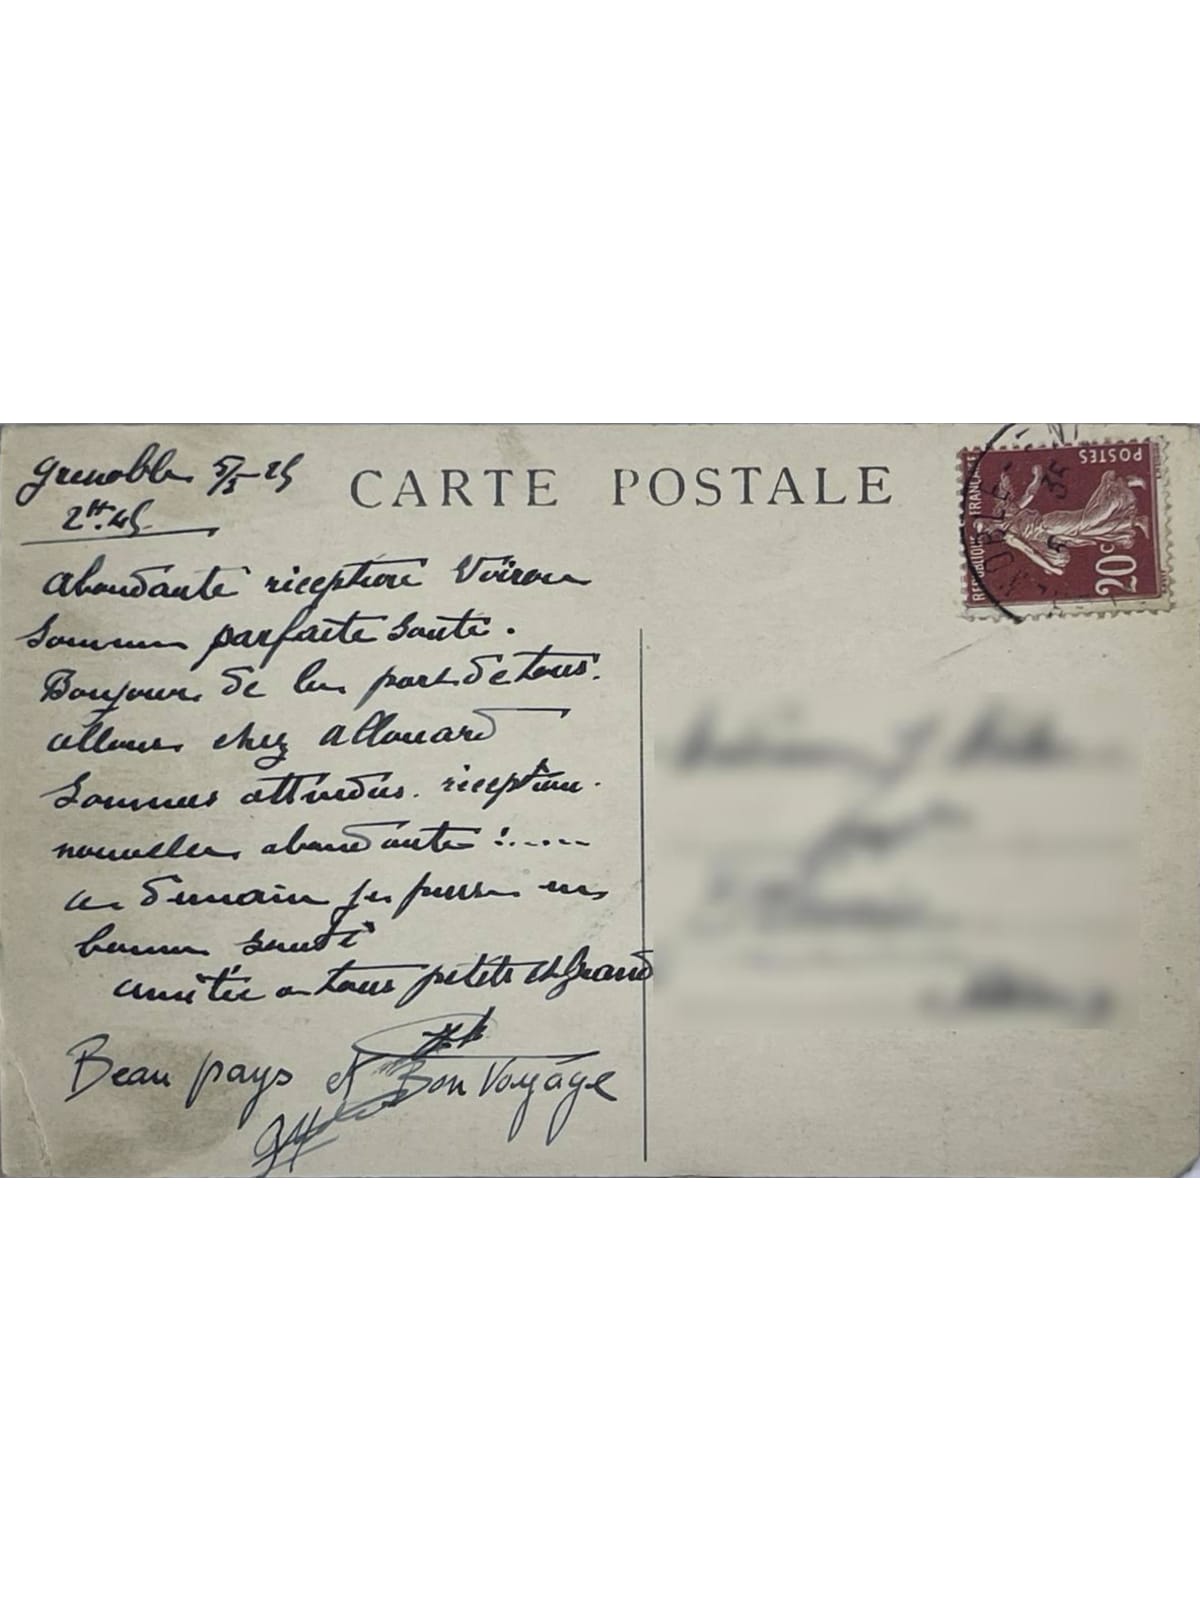 Grenoble 5/5-25
2H.45
CARTE POSTALE
RÉPUBLIQUE FRANÇAISE
POSTES
20c
abondante réception Voiron
sommes parfaite santé.
Bonjour de la part de tous.
allons chez Allouard
sommes attendus. réception.
nouvelle abondante :.....
a demain je pense en
bonne santé
amitié a tous petits et Grand
Beau pays et Bon Voyage